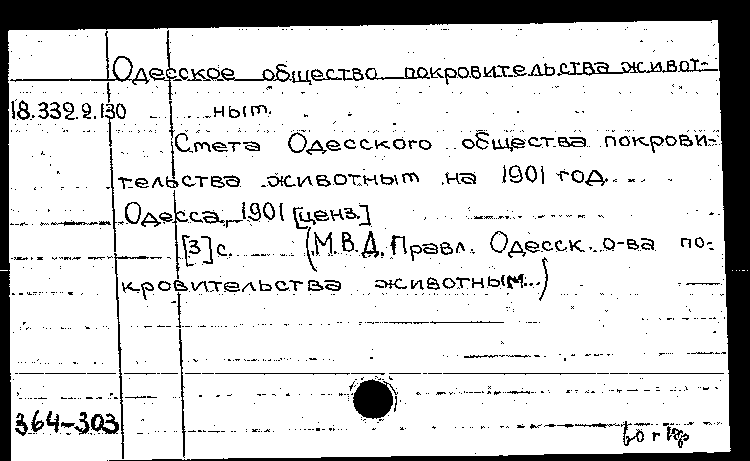 Одесское общество покровительства живот-
18.332.9.130 ным.
Смета Одесского общества покрови-
тельства животным на 1901 год.
Одесса, 1901 [ценз.]
[3] с. (М.В.Д. Правл. Одесск. о-ва по-
кровительства животным...)
364-303